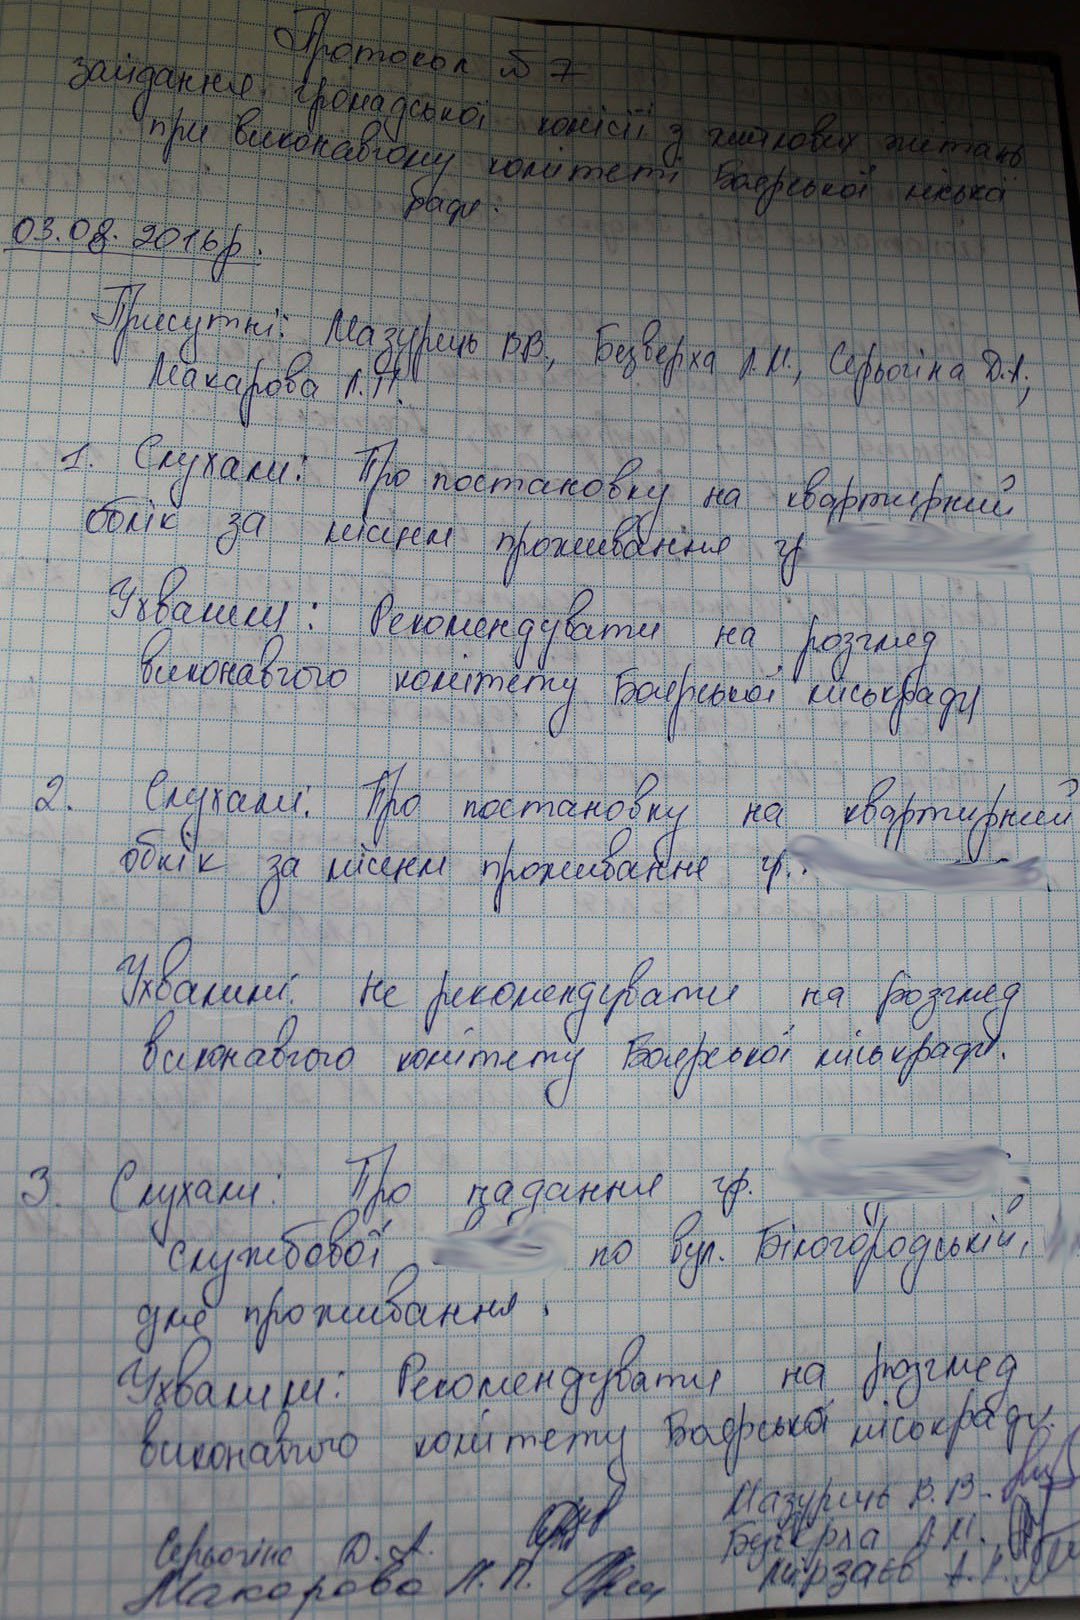 Протокол № 7
засідання громадської комісії з житлових питань
при виконавчому комітеті Боярської міської
ради.
03.08.2016р.
Присутні: Мазурець В.В., Безверха Л.М., Серьогіна Д.А.,
Макарова Л.П.
1. Слухали: Про постановку на квартирний
облік за місцем проживання гр
Ухвалили: Рекомендувати на розгляд
виконавчого комітету Боярської міськради
2. Слухали: Про постановку на квартирний
облік за місцем проживання гр.
Ухвалили: не рекомендувати на розгляд
виконавчого комітету Боярської міськради.
3. Слухали: Про надання гр.
службової по вул. Білогородській,
для проживання.
Ухвалили: Рекомендувати на розгляд
виконавчого комітету Боярської міськради.
Мазурець В.В.
Серьогіна Д.А. Безверха Л.М.
Макарова Л.П. Мірзаєв А.